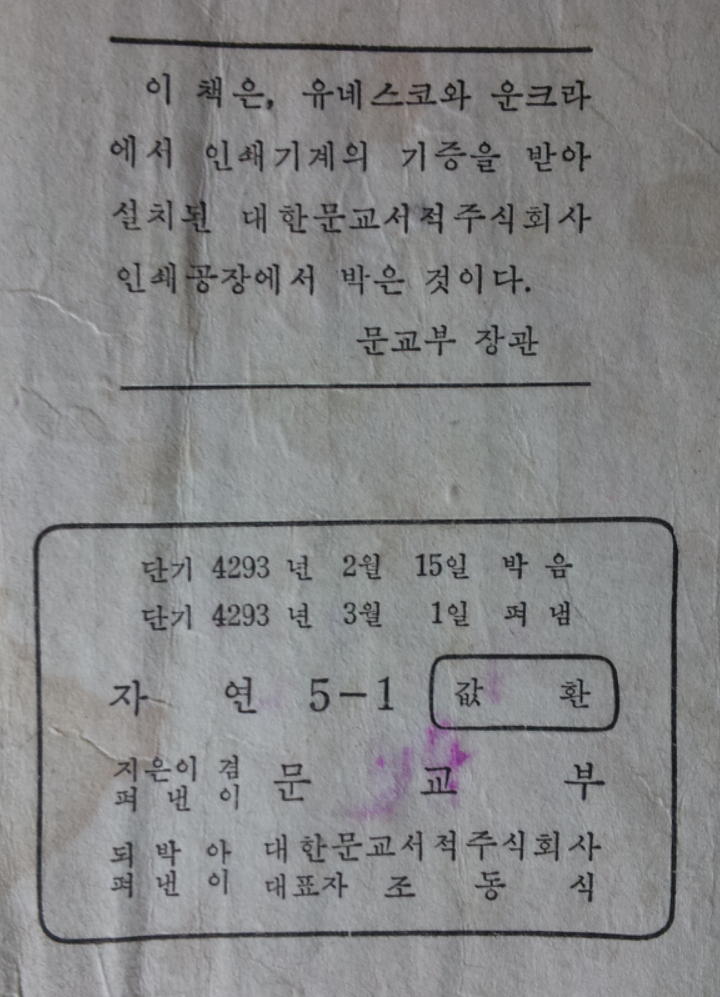 이 책은, 유네스코와 운크라
에서 인쇄기계의 기증을 받아
설치된 대한문교서적주식회사
인쇄공장에서 박은 것이다.
문교부 장관
단기 4293 년 2월 15일 박 음
단기 4293 년 3월 1일 펴 냄
자 연 5-1 값 환
지은이 겸
펴 낸 이
문 교 부
되 박 아
펴 낸 이
대한문교서적주식회사
대표자 조 동 식